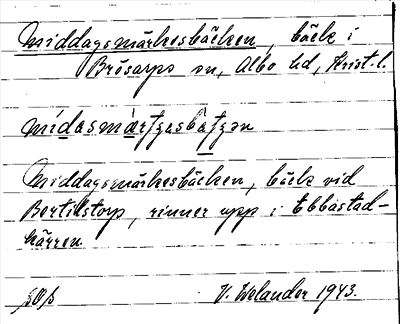 Middagsmärkesbäcken, bäck i
Brösarps sn, Albo hd, Krist. l.
Middagsmärkesbäcken, bäck vid
Bertilstorp, rinner upp i Ebbastad-
kärren
V. Welander 1943.